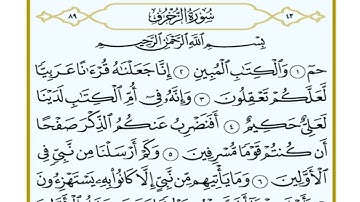 ٤٣ سُورَةُ الزُّخْرُفِ ٨٩
بِسْمِ اللَّهِ الرَّحْمَٰنِ الرَّحِيمِ
حمٓ ١ وَالْكِتَابِ الْمُبِينِ ٢ إِنَّا جَعَلْنَاهُ قُرْءَانًا عَرَبِيًّا
لَّعَلَّكُمْ تَعْقِلُونَ ٣ وَإِنَّهُۥ فِىٓ أُمِّ الْكِتَابِ لَدَيْنَا
لَعَلِىٌّ حَكِيمٌ ٤ أَفَنَضْرِبُ عَنكُمُ الذِّكْرَ صَفْحًا
أَن كُنتُمْ قَوْمًا مُّسْرِفِينَ ٥ وَكَمْ أَرْسَلْنَا مِن نَّبِىٍّ فِى
الْأَوَّلِينَ ٦ وَمَا يَأْتِيهِم مِّن نَّبِىٍّ إِلَّا كَانُوا۟ بِهِۦ يَسْتَهْزِءُونَ